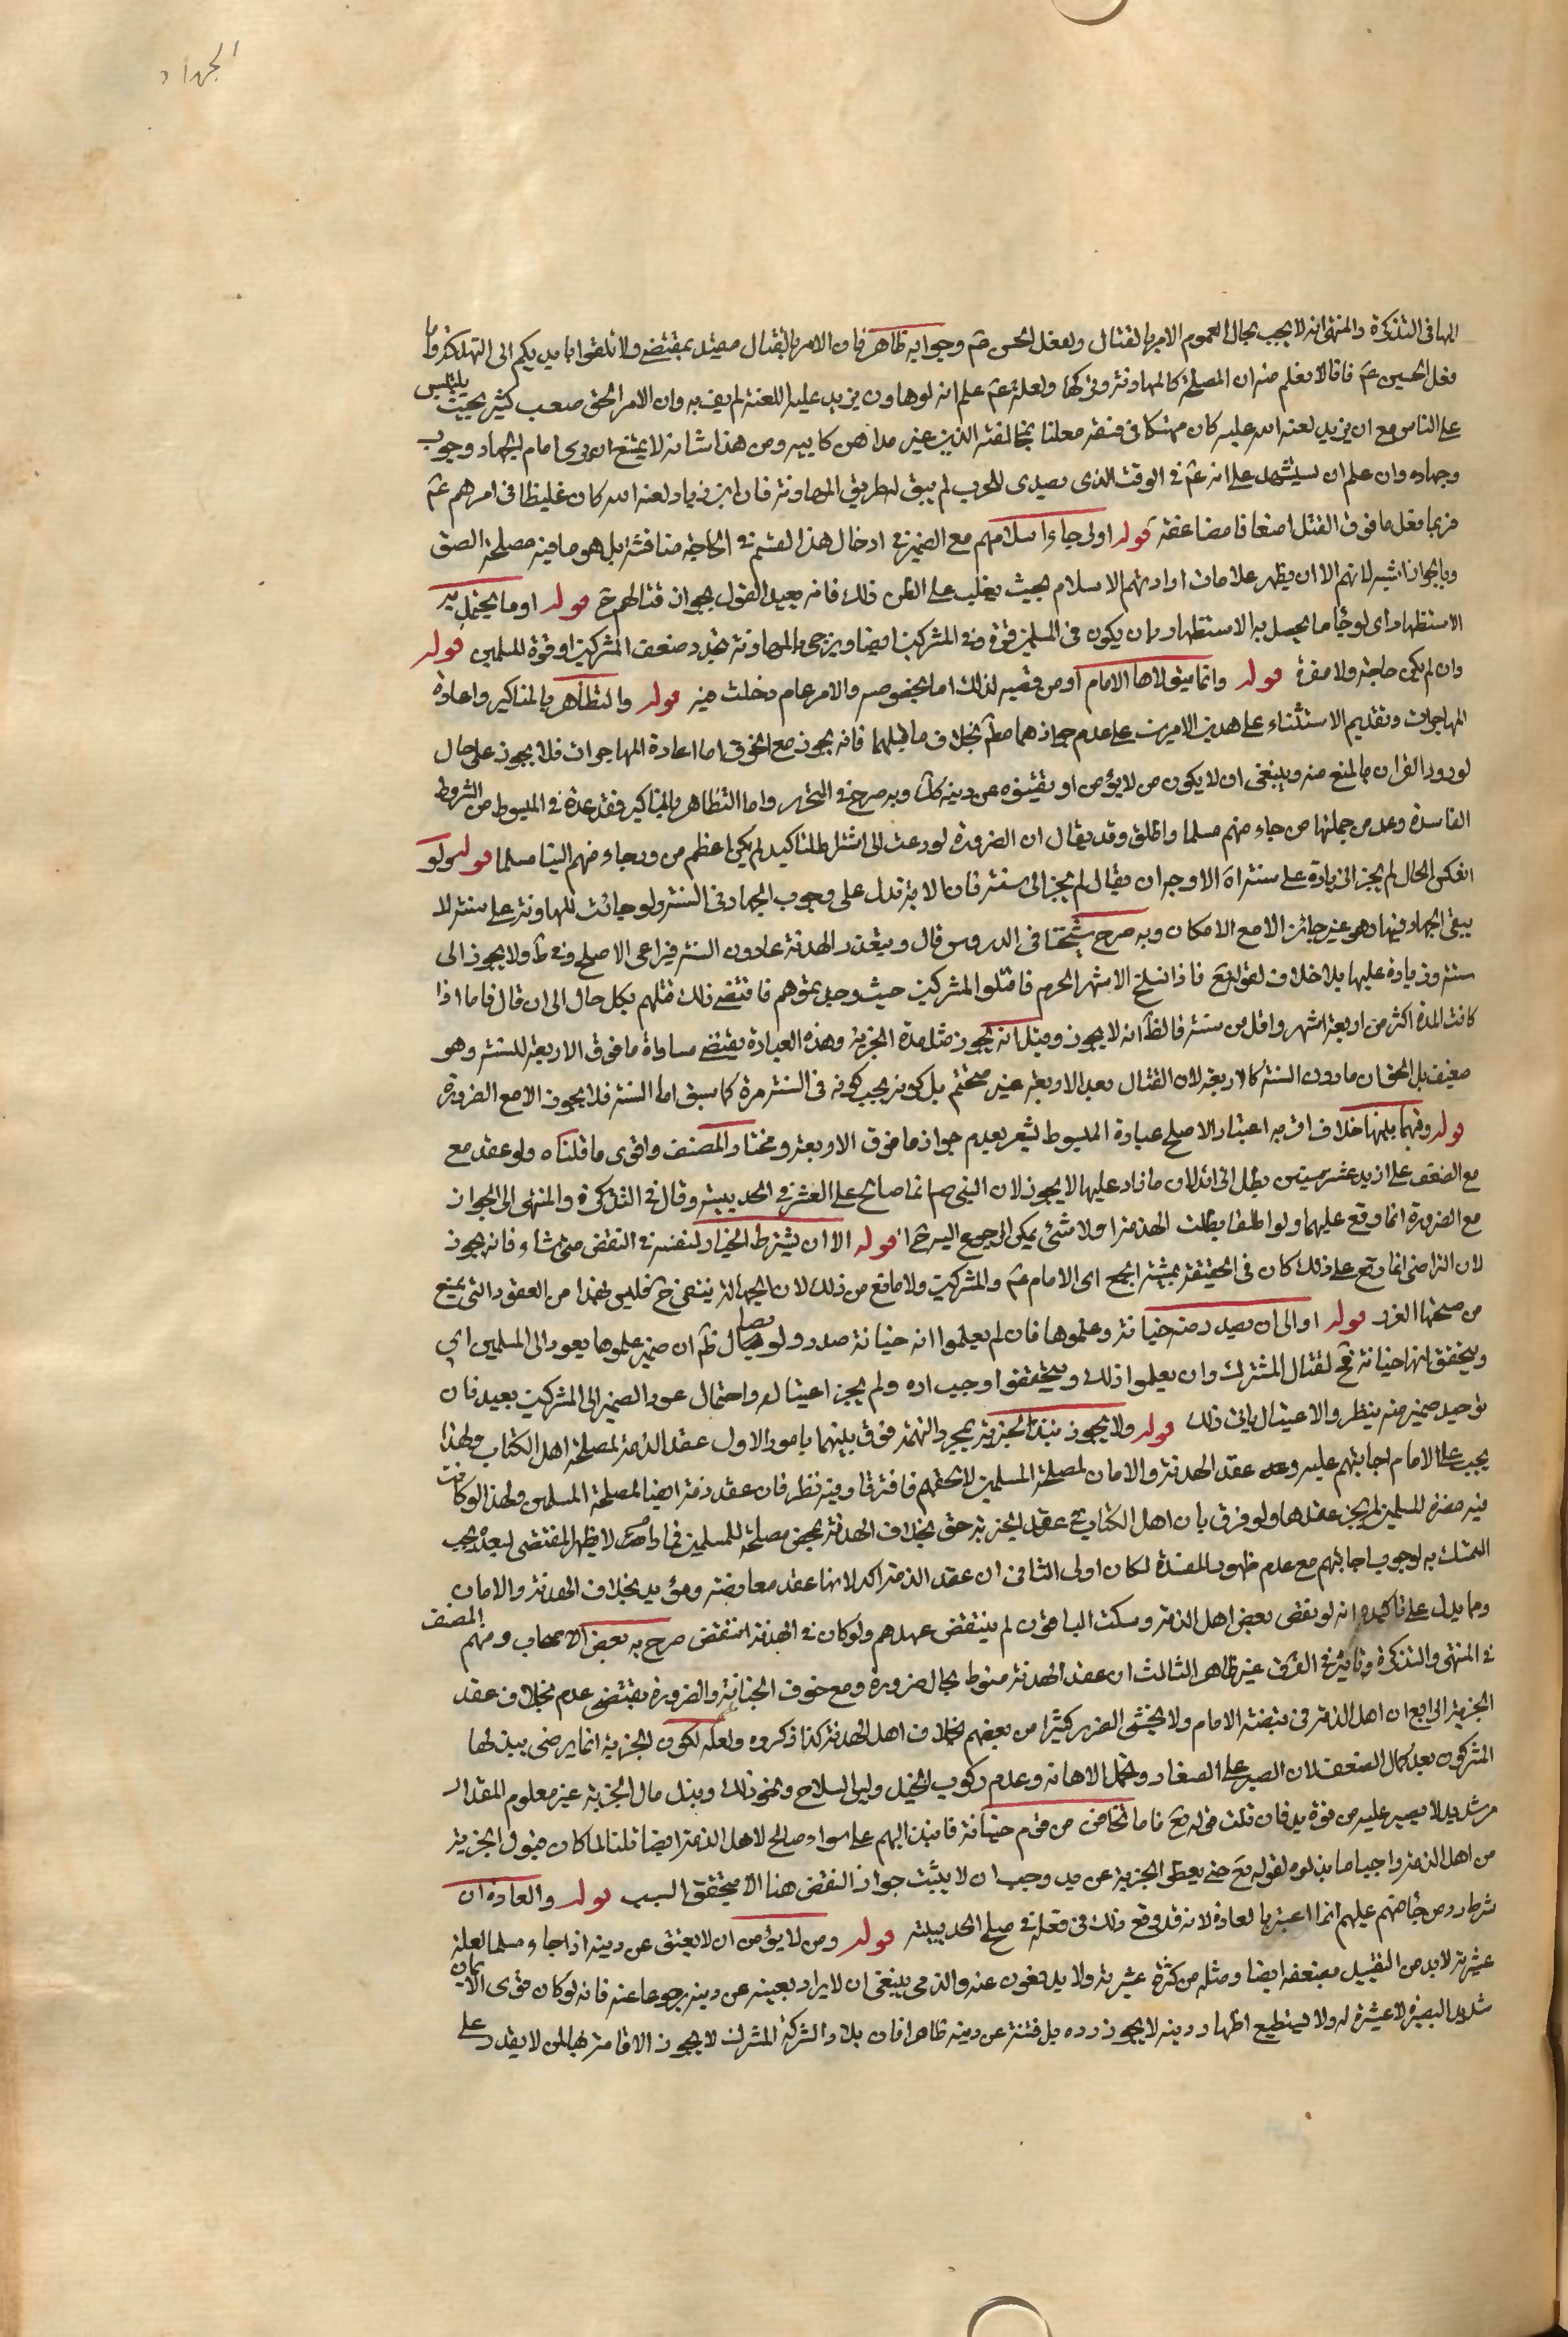 الجهاد
الهاء في التذكرة والمنتهى انه لا يجب بحال لعموم الامر بالقتال ولفعل الحسين ع وجوابه ظاهر فان الامر بالقتال مقيد بمقتضى ولا تلقوا بايديكم الى التهلكة واما
فعل الحسين ع فانا لا نعلم منه ان المصلحة كانت في المهادنة وتركها ولعله ع علم انه لو هادن يزيد عليه اللعنة لم يف به وان الامر الحق صعب كثير بحيث يلتبس
على الناس مع ان يزيد لعنه الله عليه كان متهتكا في فسقه معلنا بمخالفة الدين غير مداهن كابيه ومن هذا شانه لا يمتنع ان يرى امام الجهاد وجوب
وجهاده وان علم ان يستشهد على انه ع في الوقت الذى تصدى للحرب لم يبق له طريق المهادنة فان ابن زياد لعنه الله كان غليظا في امرهم ع
فربما فعل ما فوق القتل اضعافا مضاعفة قوله او لرجاء اسلامهم مع الضميرة ادخال هذا القسم في الحاجة مناقشة بل هو ما فيه مصلحة
وبالجواز اشبه لانهم الا ان يظهر علامات ارادتهم الاسلام بحيث يغلب على الظن ذلك فانه يبعد القول بجواز قتالهم ح قوله او ما يحصل به
الاستظهار اى لرجاء ما يحصل به الاستظهار بان يكون في المسلمين قوة وفي المشركين ايضا ويرجى بالمهادنة تجدد ضعف المشركين او قوة للمسلمين قوله
وان لم يكن حاجة ولا مضرة قوله وانما يتولاها الامام او من نصبه لذلك اما بخصوصه والامر عام دخلت فيه قوله والتظاهر بالمناكير واعادة
المهاجرات وتقديم الاستثناء على هذين الامرين على عدم جوازهما مطلقا بخلاف ما قبلهما فانه يجوز مع الخوف اما اعادة المهاجرات فلا يجوز على حال
لورود القران بالمنع منه وينبغى ان لا يكون من لا يؤمن ان يفتنوه عن دينه كذلك وبه صرح في التحرير واما التظاهر بالمناكير فقد عده في المبسوط من الشروط
الفاسدة وعد من جملتها من جاء منهم مسلما واطلق وقد يقال ان الضرورة لو دعت الى اشتراط المناكير لم يكن اعظم من رد من جاء منهم الينا مسلما قوله ولو
انعكس الحال لم يجز الزيادة على سنة الاوجه ان يقال لم يجز الى سنة فان الاية تدل على وجوب الجهاد في السنة ولو جازت المهادنة على سنة لا
يبقى الجهاد فيها وهو غير جائز الا مع الامكان وبه صرح شيخنا في الدروس قال ويتقدر الهدنة بما دون السنة فيراعى الاصلح وفي ط ولا يجوز الى
سنة وزيادة عليها بلا خلاف لقوله تع فاذا انسلخ الاشهر الحرم فاقتلوا المشركين حيث وجدتموهم فاقتضى ذلك قتلهم بكل حال الى ان قال فاما اذا
كانت المدة اكثر من اربعة اشهر واقل من سنة فالظاهر انه لا يجوز وقيل انه يجوز مثل مدة الجزية وهذه العبارة يقتضى مساواة ما فوق الاربعة للسنة وهو
ضعيف بل الحق ان ما دون السنة كالاربعة لان القتال بعد الاربعة غير متحتم بل كونه يجب كونه في السنة مرة كما سبق اما السنة فلا يجوز الا مع الضرورة
قوله وفيما بينهما خلاف اقربه اعتبار الاصلح عبارة المبسوط يشعر بعدم جواز ما فوق الاربعة ومختار المصنف واقوى ما قلناه ولو عقد مع
مع الضعف على ازيد من عشر سنين بطل الزائد لان ما زاد عليها لا يجوز لان النبى ص انما صالح على العشر في الحديبية وقال في التذكرة والمنتهى الى الجواز
مع الضرورة انما وقع عليهما ولو اطلقا بطلت الهدنة اذ لا شئ يمكن الرجوع اليه ح قوله الا ان يشترط الخيار لنفسه في النقض متى شاء فانه يجوز
لان التراضى انما وقع على ذلك كان في الحقيقة بمشية الجميع اى الامام ع والمشركين ولا مانع من ذلك لان الجهالة ينتفى ح فليس هذا من العقود التى يمنع
من صحتها الغرر قوله او الى ان يصدر منه خيانة وعلموها فان لم يعلموا انه خيانة صدر ولو بسؤال ظاهر ان ضمير علموها يعود الى المسلمين اي
ويتحقق انها خيانة فح لقتال المشرك وان يعلموا ذلك ويتحققوا وجب رده ولم يجز اغتياله واحتمال عود الضمير الى المشركين بعيد فان
توحيد ضمير منه ينظر والاغتيال ياباه ذلك قوله ولا يجوز نبذ الجزية بمجرد التهمة فرق بينهما بامور الاول عقد الذمة لمصلحة اهل الكتاب ولهذا
يجب على الامام اجابتهم عليه وعقد الهدنة والامان لمصلحة المسلمين لا لحقهم فافترقا وفيه نظر فان عقد الذمة ايضا لمصلحة المسلمين ولهذا لو كانت
فيه مضرة للمسلمين لم يجز عقدها ولو فرق بان اهل الكتاب في عقد الجزية حق بخلاف الهدنة بمحض مصلحة للمسلمين لا يظهر المقتضى
التمسك به لوجوب اجابتهم مع عدم ظهور المفسدة لكان اولى الثانى ان عقد الذمة اكد لانها عقد معاوضة ومؤبد بخلاف الهدنة والامان
ومما يدل على تاكيده انه لو نقض بعض اهل الذمة وسكت الباقون لم ينتقض عهدهم ولو كان في الهدنة انتقض صرح به بعض الاصحاب ومنهم المصنف
في المنتهى والتذكرة وتاثيره في الفرق غير ظاهر الثالث ان عقد الهدنة منوط بحال ضرورة ومع خوف الخيانة والضرورة يقتضى عدم بخلاف عقد
الجزية الرابع ان اهل الذمة في قبضة الامام ولا يخشى الضرر كثيرا من بعضهم بخلاف اهل الهدنة كذا ذكروه ولعله لكون الجزية انما يرضى ببذلها
المشركون بعد كمال الضعف لان الصبر على الصغار وتحمل الاهانة وعدم ركوب الخيل ولبس السلاح ونحو ذلك وبذل مال الجزية غير معلوم المقدار
مر شديد لا يصبر عليه من فوة يد فان قلت قوله تع فاما تخافن من قوم خيانة فانبذ اليهم على سواء صالح لاهل الذمة ايضا قلنا لما كان قبول الجزية
من اهل الذمة واجبا ما بذلوه لقوله تع حتى يعطوا الجزية عن يد وجب ان لا يثبت جواز النقض هنا الا بتحقق السبب قوله والعادة ان
شرط رد من جاء منهم عليهم انما اعتبر بالعادة لانه قد وقع ذلك في فعله في صلح الحديبية قوله ومن لا يؤمن ان لا يفتن عن دينه اذا جاء مسلما لعله
عشيرته لابد من التقييد بمنعه ايضا ومثله من كثرة عشيرته ولا يدفعون عنه والذى ينبغى ان لا يراد بعينه عن دينه رجوعا عنه فانه لو كان قوى الايمان
شديد البصيرة لا عشيرة له ولا يستطيع اظهار دينه لا يجوز رده بل فتنة عن دينه ظاهرا فان بلاد الشرك لا يجوز الاقامة بها لمن لا يقدر على